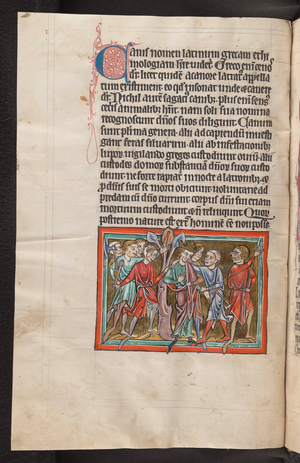 Canis nomen latinum grecam ethi
mologiam habere videtur. Grece enim cenos
dicitur licet quidam a canore latratus appella
tum existiment eo quod insonat unde et canere
dicitur. Nichil autem sagatius canibus, plus enim sensus
ceteris animalibus habent. nam soli sua nomina
recognoscunt dominos suos diligunt. Canum
sunt plurima genera. alii ad capiendum inuesti
gant feras siluarum. alii ab infestationibus
luporum uigilando greges custodiunt ouium. alii
custodes domorum substantiam dominorum suorum custo
diunt ne forte rapiatur in nocte a latronibus. et
pro dominis suis se morti obiciunt. uoluntarie ad
predam cum domino currunt. corpus domini sui etiam
mortuum custodiunt et non relinquunt. Quorum
postremo nature est extra hominem esse non posse